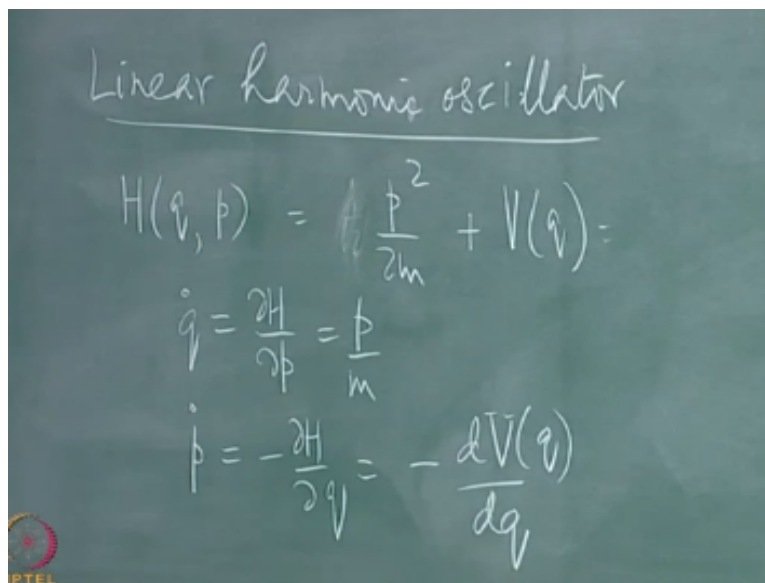 Linear harmonic oscillator
H(q, p) = p²/2m + V(q) =
q̇ = ∂H/∂p = p/m
ṗ = -∂H/∂q = - dV(q)/dq
PTEL